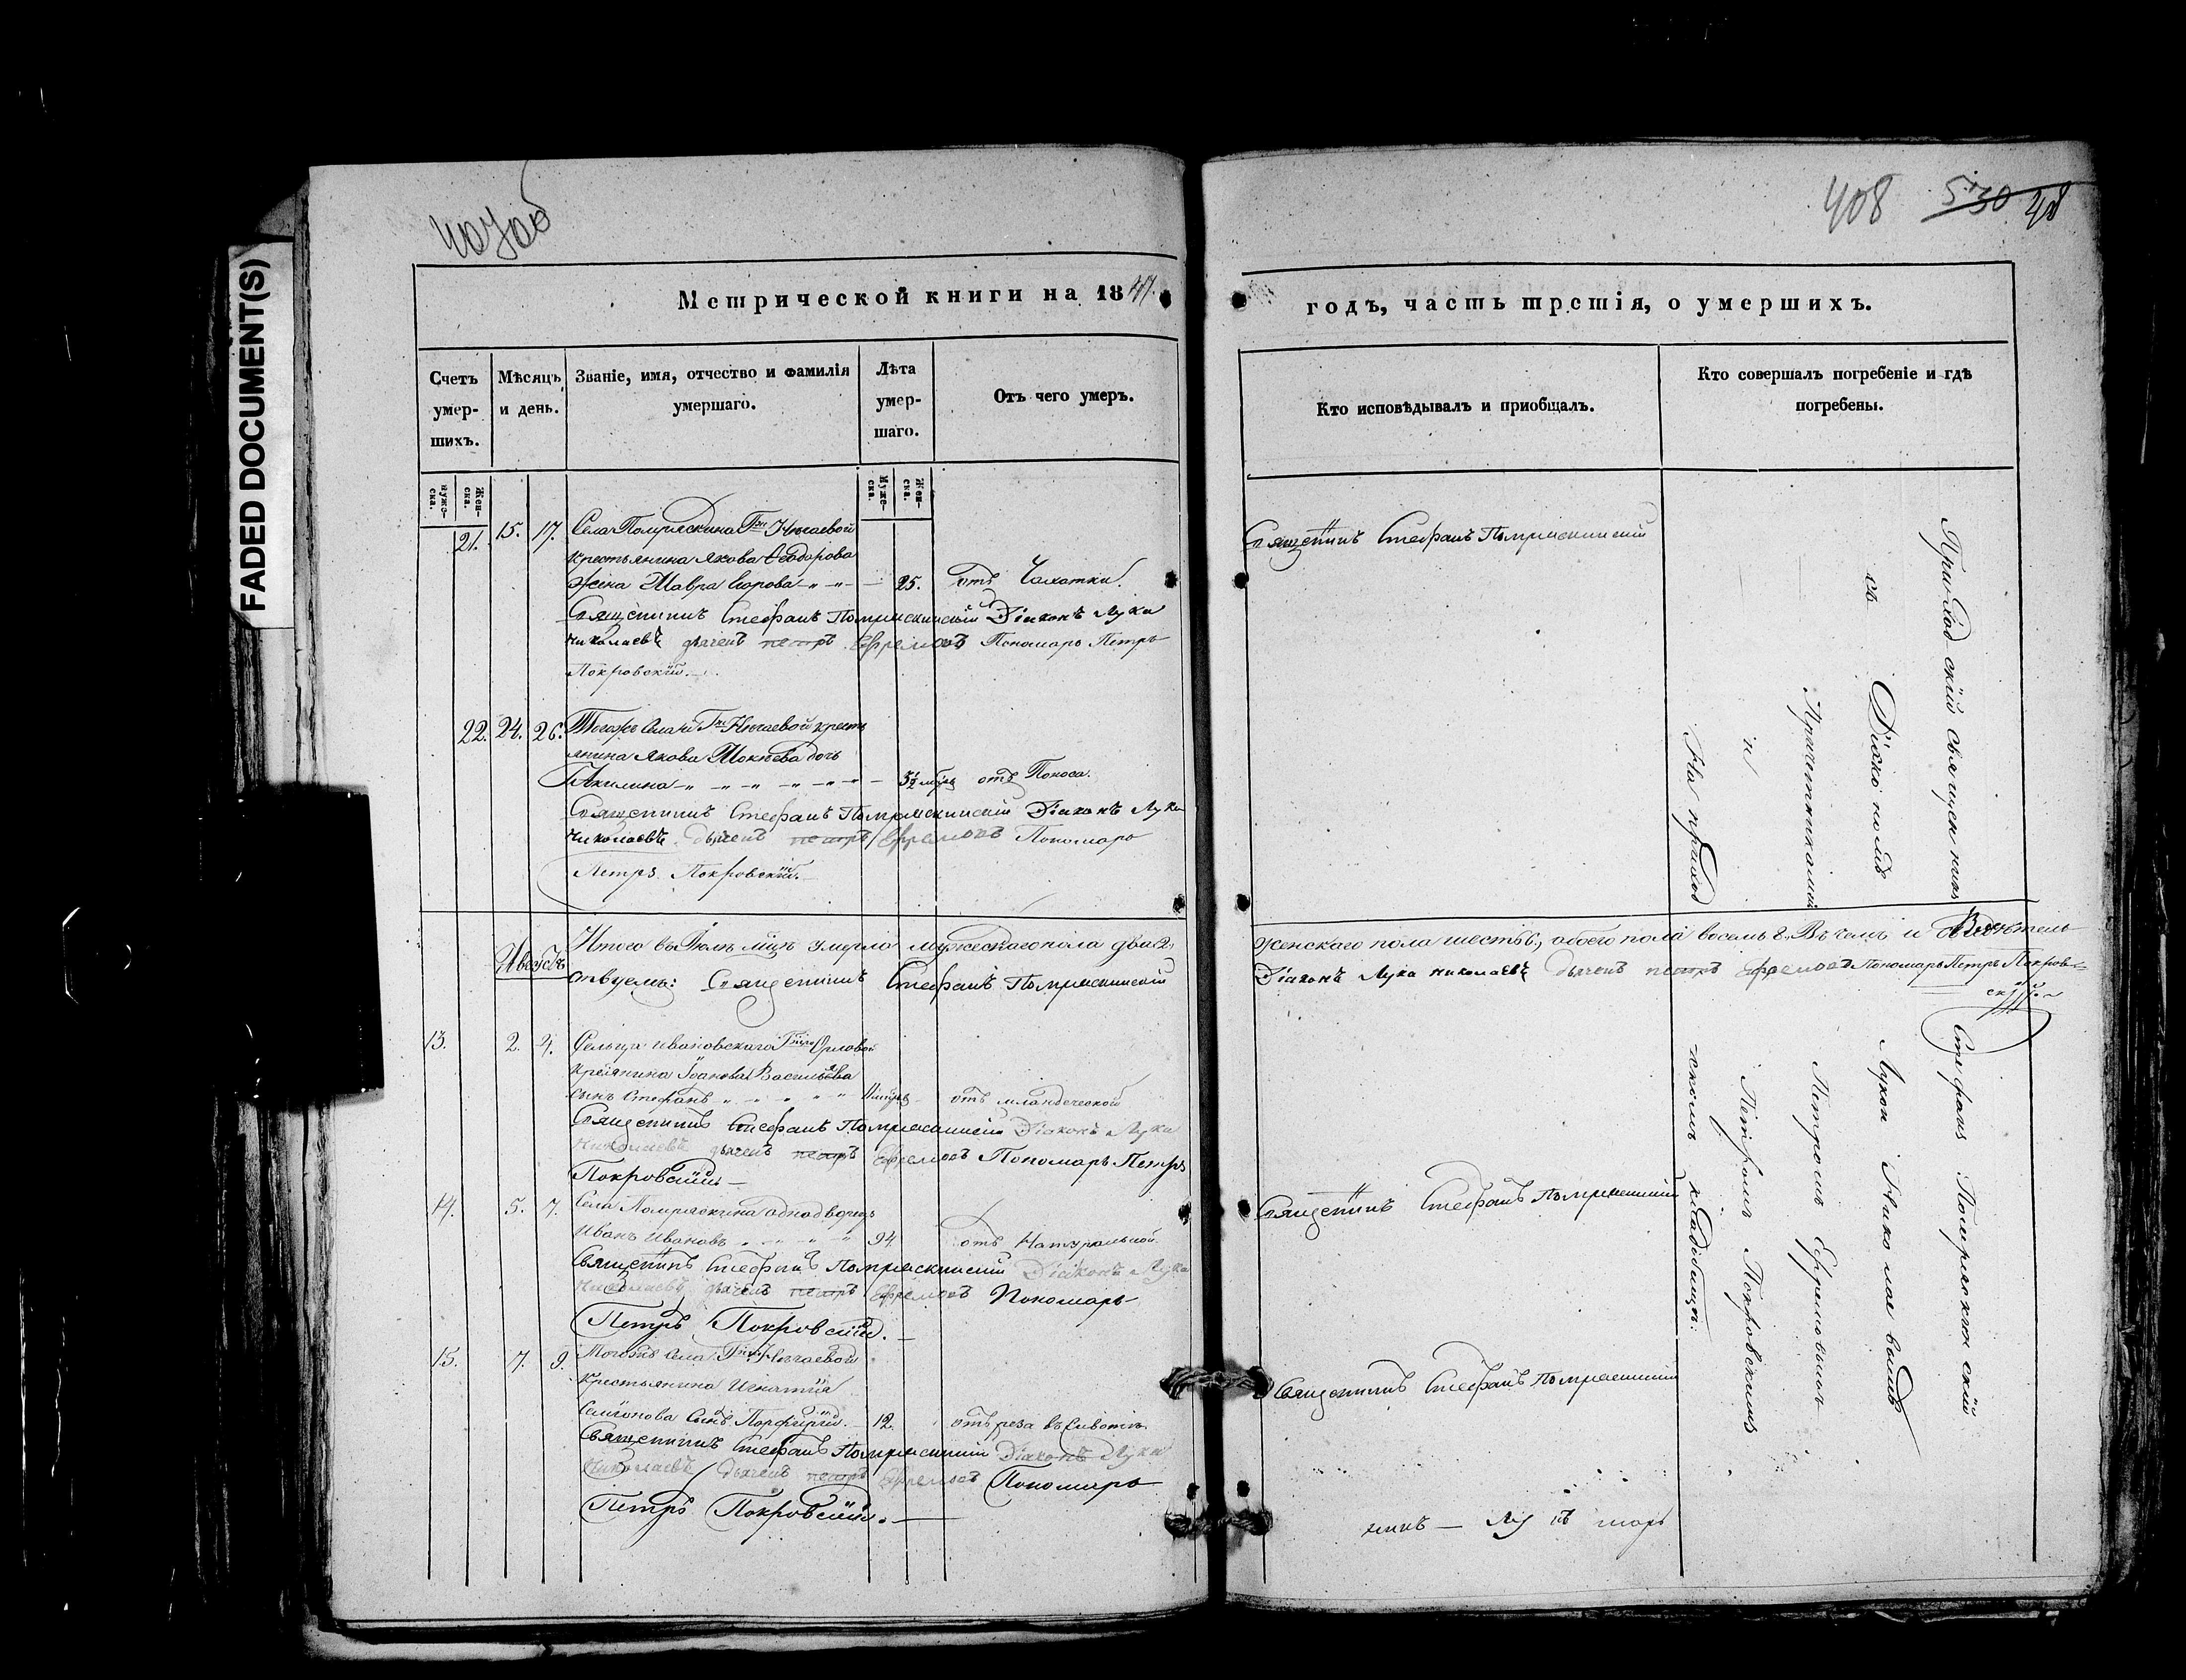 FADED DOCUMENT(S)
407об
408 530
Метрической книги на 1847.
годъ, часть третія, о умершихъ.
Счетъ умер-шихъ.
Мѣсяцъ и день.
Званіе, имя, отчество и фамилія умершаго.
Лѣта умер-шаго.
Отъ чего умеръ.
Кто исповѣдывалъ и приобщалъ.
Кто совершалъ погребеніе и гдѣ погребены.
Муже-ска.
Жен-ска.
Муже-ска.
Жен-ска.
21. 15. 17. Села Помряскина Гжи Нечаевой
крестьянина Якова Ѳеодорова
жена Мавра 25. отъ Чахотки.
Священникъ Стефанъ Помряскинскій Діаконъ Лука
Николаевъ дьячекъ петръ Ефремовъ Пономарь Петръ
Покровскій.
22. 24. 26. Тогожъ села Гжи Нечаевой кресть
янина Якова дочь
Акилина отъ Поноса.
Священникъ Стефанъ Помряскинскій Діаконъ Лука
Николаевъ дьячекъ петръ Ефремовъ Пономарь
Петръ Покровскій.
Августъ
Итого въ Іюлѣ мцѣ умерло мужескаго пола два 2,
ствуемъ: Священникъ Стефанъ Помряскинскій
13. 2. 4. Сельца Ивановскаго Орловой
Іоанна Васильева
сынъ Стефанъ отъ младенческой
Священникъ Стефанъ Помряскинскій Діаконъ Лука
Николаевъ дьячекъ петръ Ефремовъ Пономарь Петръ
Покровскій
14. 5. 7. Села Помряскина однодворецъ
Иванъ Ивановъ 94. отъ Натуральной
Священникъ Стефанъ Помряскинскій Діаконъ Лука
Николаевъ дьячекъ петръ Ефремовъ Пономарь
Петръ Покровскій.
15. 7. 9. Тогожъ села Нечаевой
крестьянина Игнатія
Семіонова сынъ Порфирій. 12. отъ реза въ животѣ
Священникъ Стефанъ Помряскинскій Діаконъ Лука
Николаевъ дьячекъ петръ Ефремовъ Пономарь
Петръ Покровскій.
Священникъ Стефанъ Помряскинскій
Приходскій священникъ
съ Діакономъ
Причетниками
и
На приход
Женскаго пола шесть 6., обоего пола восемь 8. Въ чемъ и свидѣтель
Діаконъ Лука Николаевъ дьячекъ петръ Ефремовъ Пономарь Петръ Покров
скій
Священникъ Стефанъ Помряскинскій
Священникъ Стефанъ Помряскинскій
Стефанъ Помряскинскій
Лукою Николаевымъ
Петромъ Ефремовымъ
Петромъ Покровскимъ
скомъ кладбищѣ.